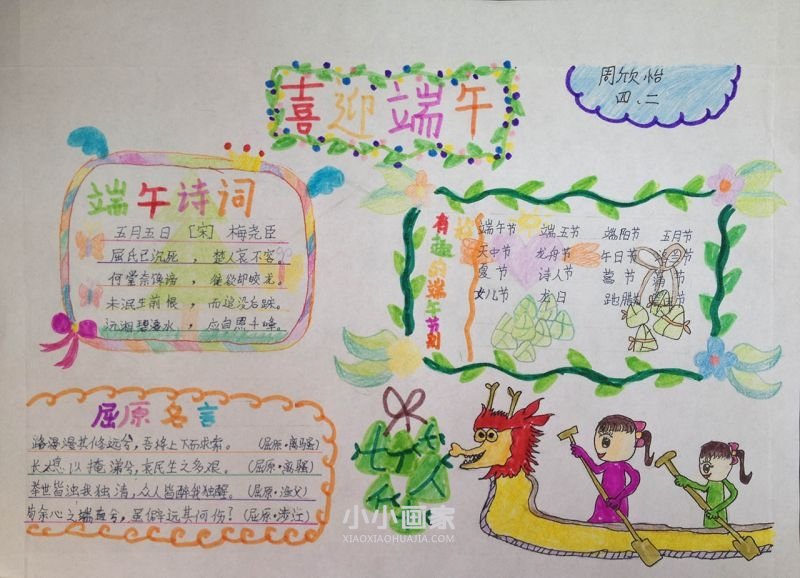 喜迎端午
周欣怡
四.二
端午诗词
五月五日 [宋] 梅尧臣
屈氏已沉死，楚人哀不容。
何尝奈谗谤，徒欲却蛟龙。
未泯生前恨，而追没后踪。
沅湘碧潭水，应自照千峰。
有趣的端午节别
端午节 端五节 端阳节 五月节
天中节 龙舟节 午日节
夏节 诗人节 菖节 蒲节
女儿节 龙日 地腊
屈原名言
路漫漫其修远兮，吾将上下而求索。（屈原·离骚）
长太息以掩涕兮，哀民生之多艰。（屈原·离骚）
举世皆浊我独清，众人皆醉我独醒。（屈原·渔父）
苟余心之端直兮，虽僻远其何伤？（屈原·涉江）
小小画家
XIAOXIAOHUAJIA.COM